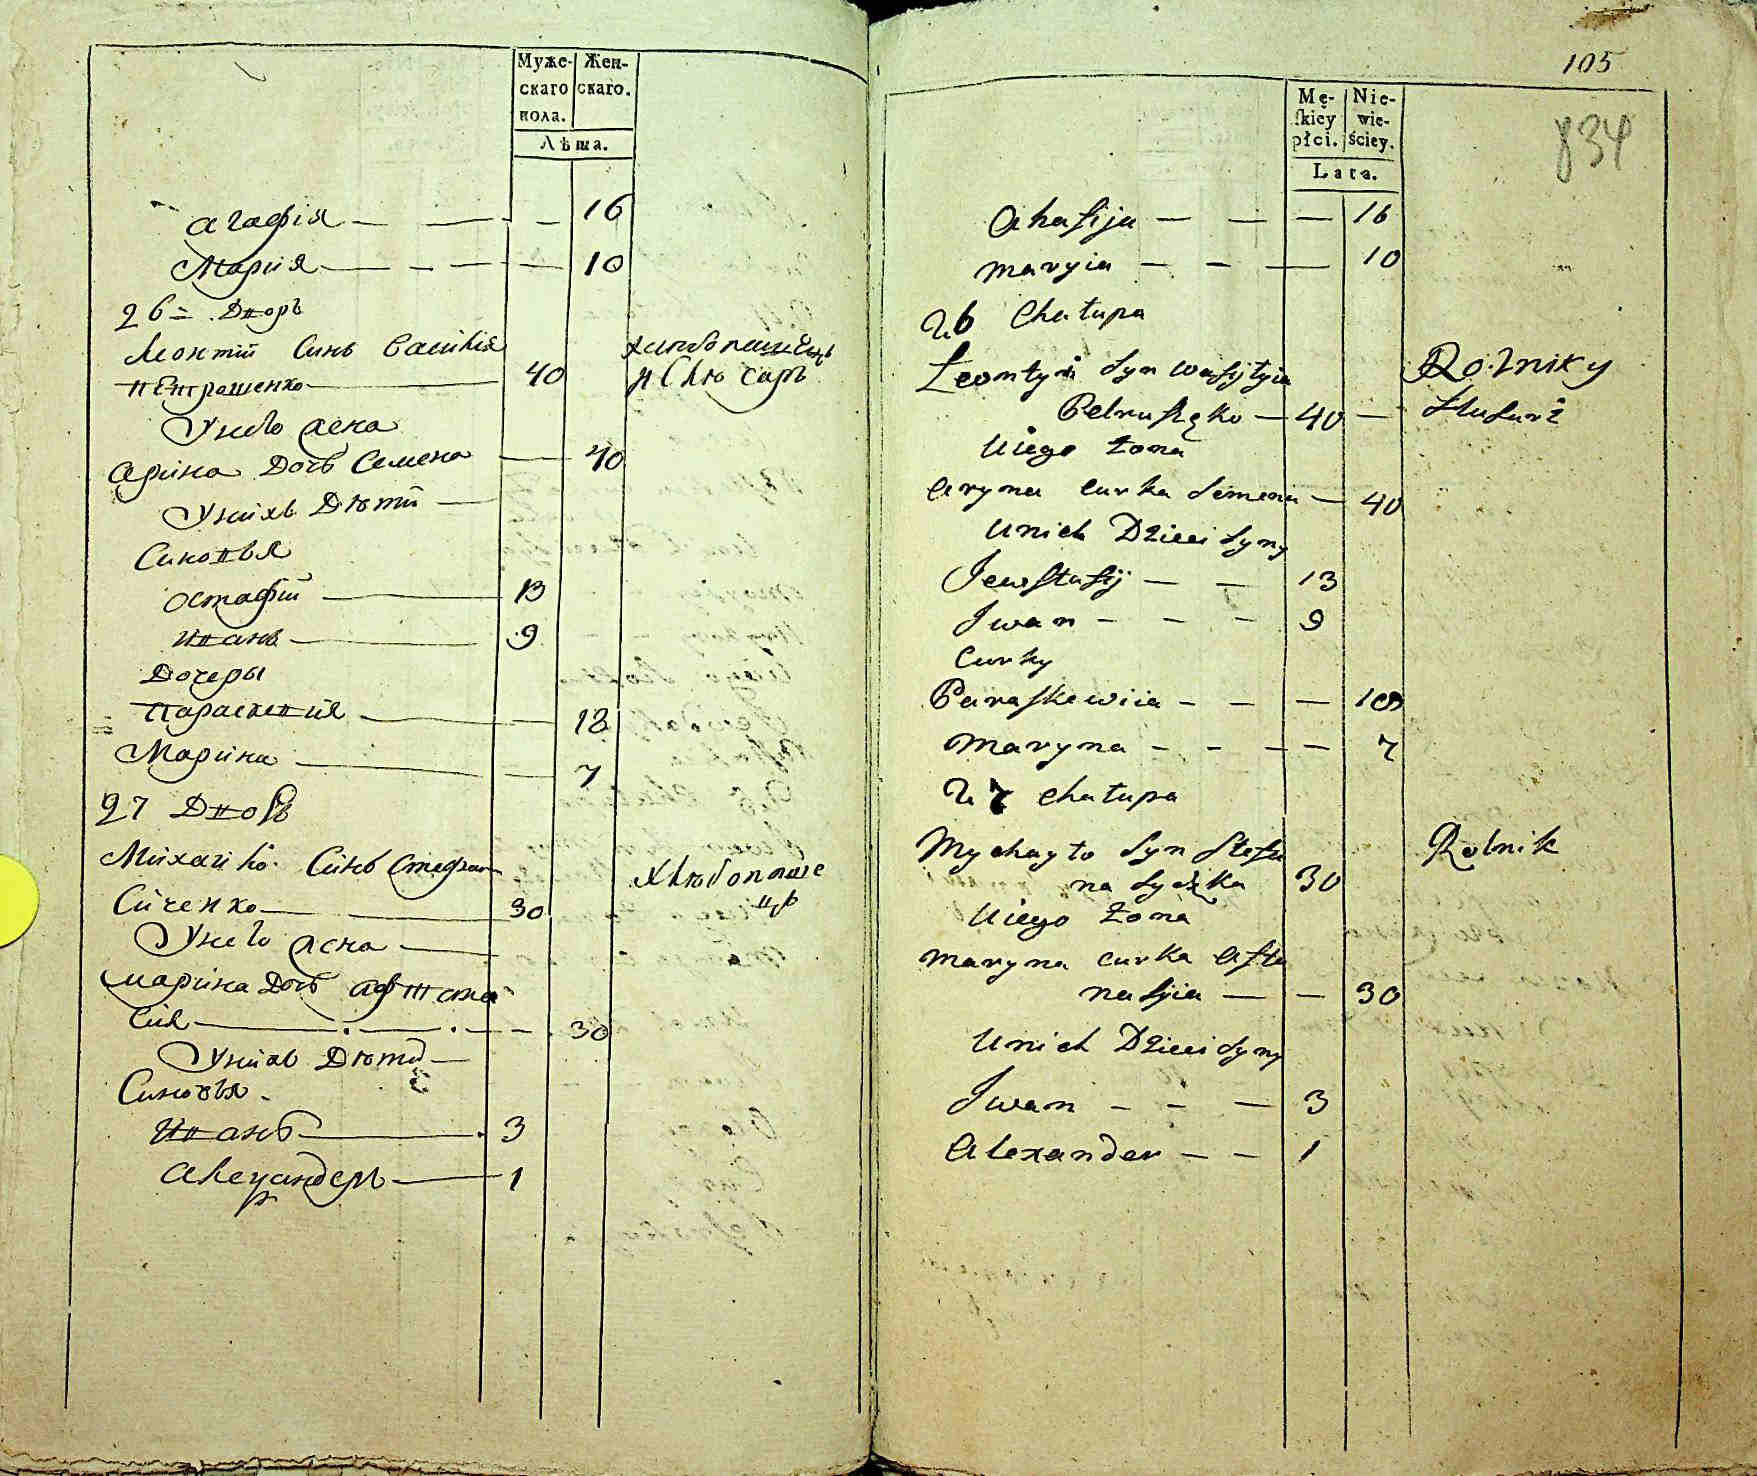 Муже-
скаго
пола.
Жен-
скаго.
Лѣта.
Агафія 16
Мария 10
26 = Дворъ
Леонтий Синъ Василія
Петрашенко 40
хлѣбопашецъ
и слюсаръ
Унего жена
Арина Дочь Семена 40
Унихъ Дѣти
Синовья
Остафий 13
Иванъ 9
Дочеры
Параскевия 18
Марина 7
27 Дворъ
Михайло Синъ Стефана
Сиченко 30
Хлѣбопаше
цъ
Унего жена
Марина Дочь Афтана
сия 30
Унихъ Дѣти
Синовья
Иванъ 3
Алеѯандеръ 1
105
834
Mę-
ſkiey
płci.
Nie-
wie-
ściey.
Lata.
Ahafija 16
Maryia 10
26 Chałupa
Leontyi Syn Wasyłyia
Petruszęko 40
Rolniky
Slusarz
Uiego Żona
Aryna Curka Semena 40
Unich Dzieci Syny
Jewstafij 13
Iwan 9
Curky
Paraskewiia 18
Maryna 7
27 Chałupa
Mychayło Syn Stefa
na Syczka 30
Rolnik
Uiego Żona
Maryna Curka Afta
nasyia 30
Unich Dzieci Syny
Iwan 3
Alexander 1